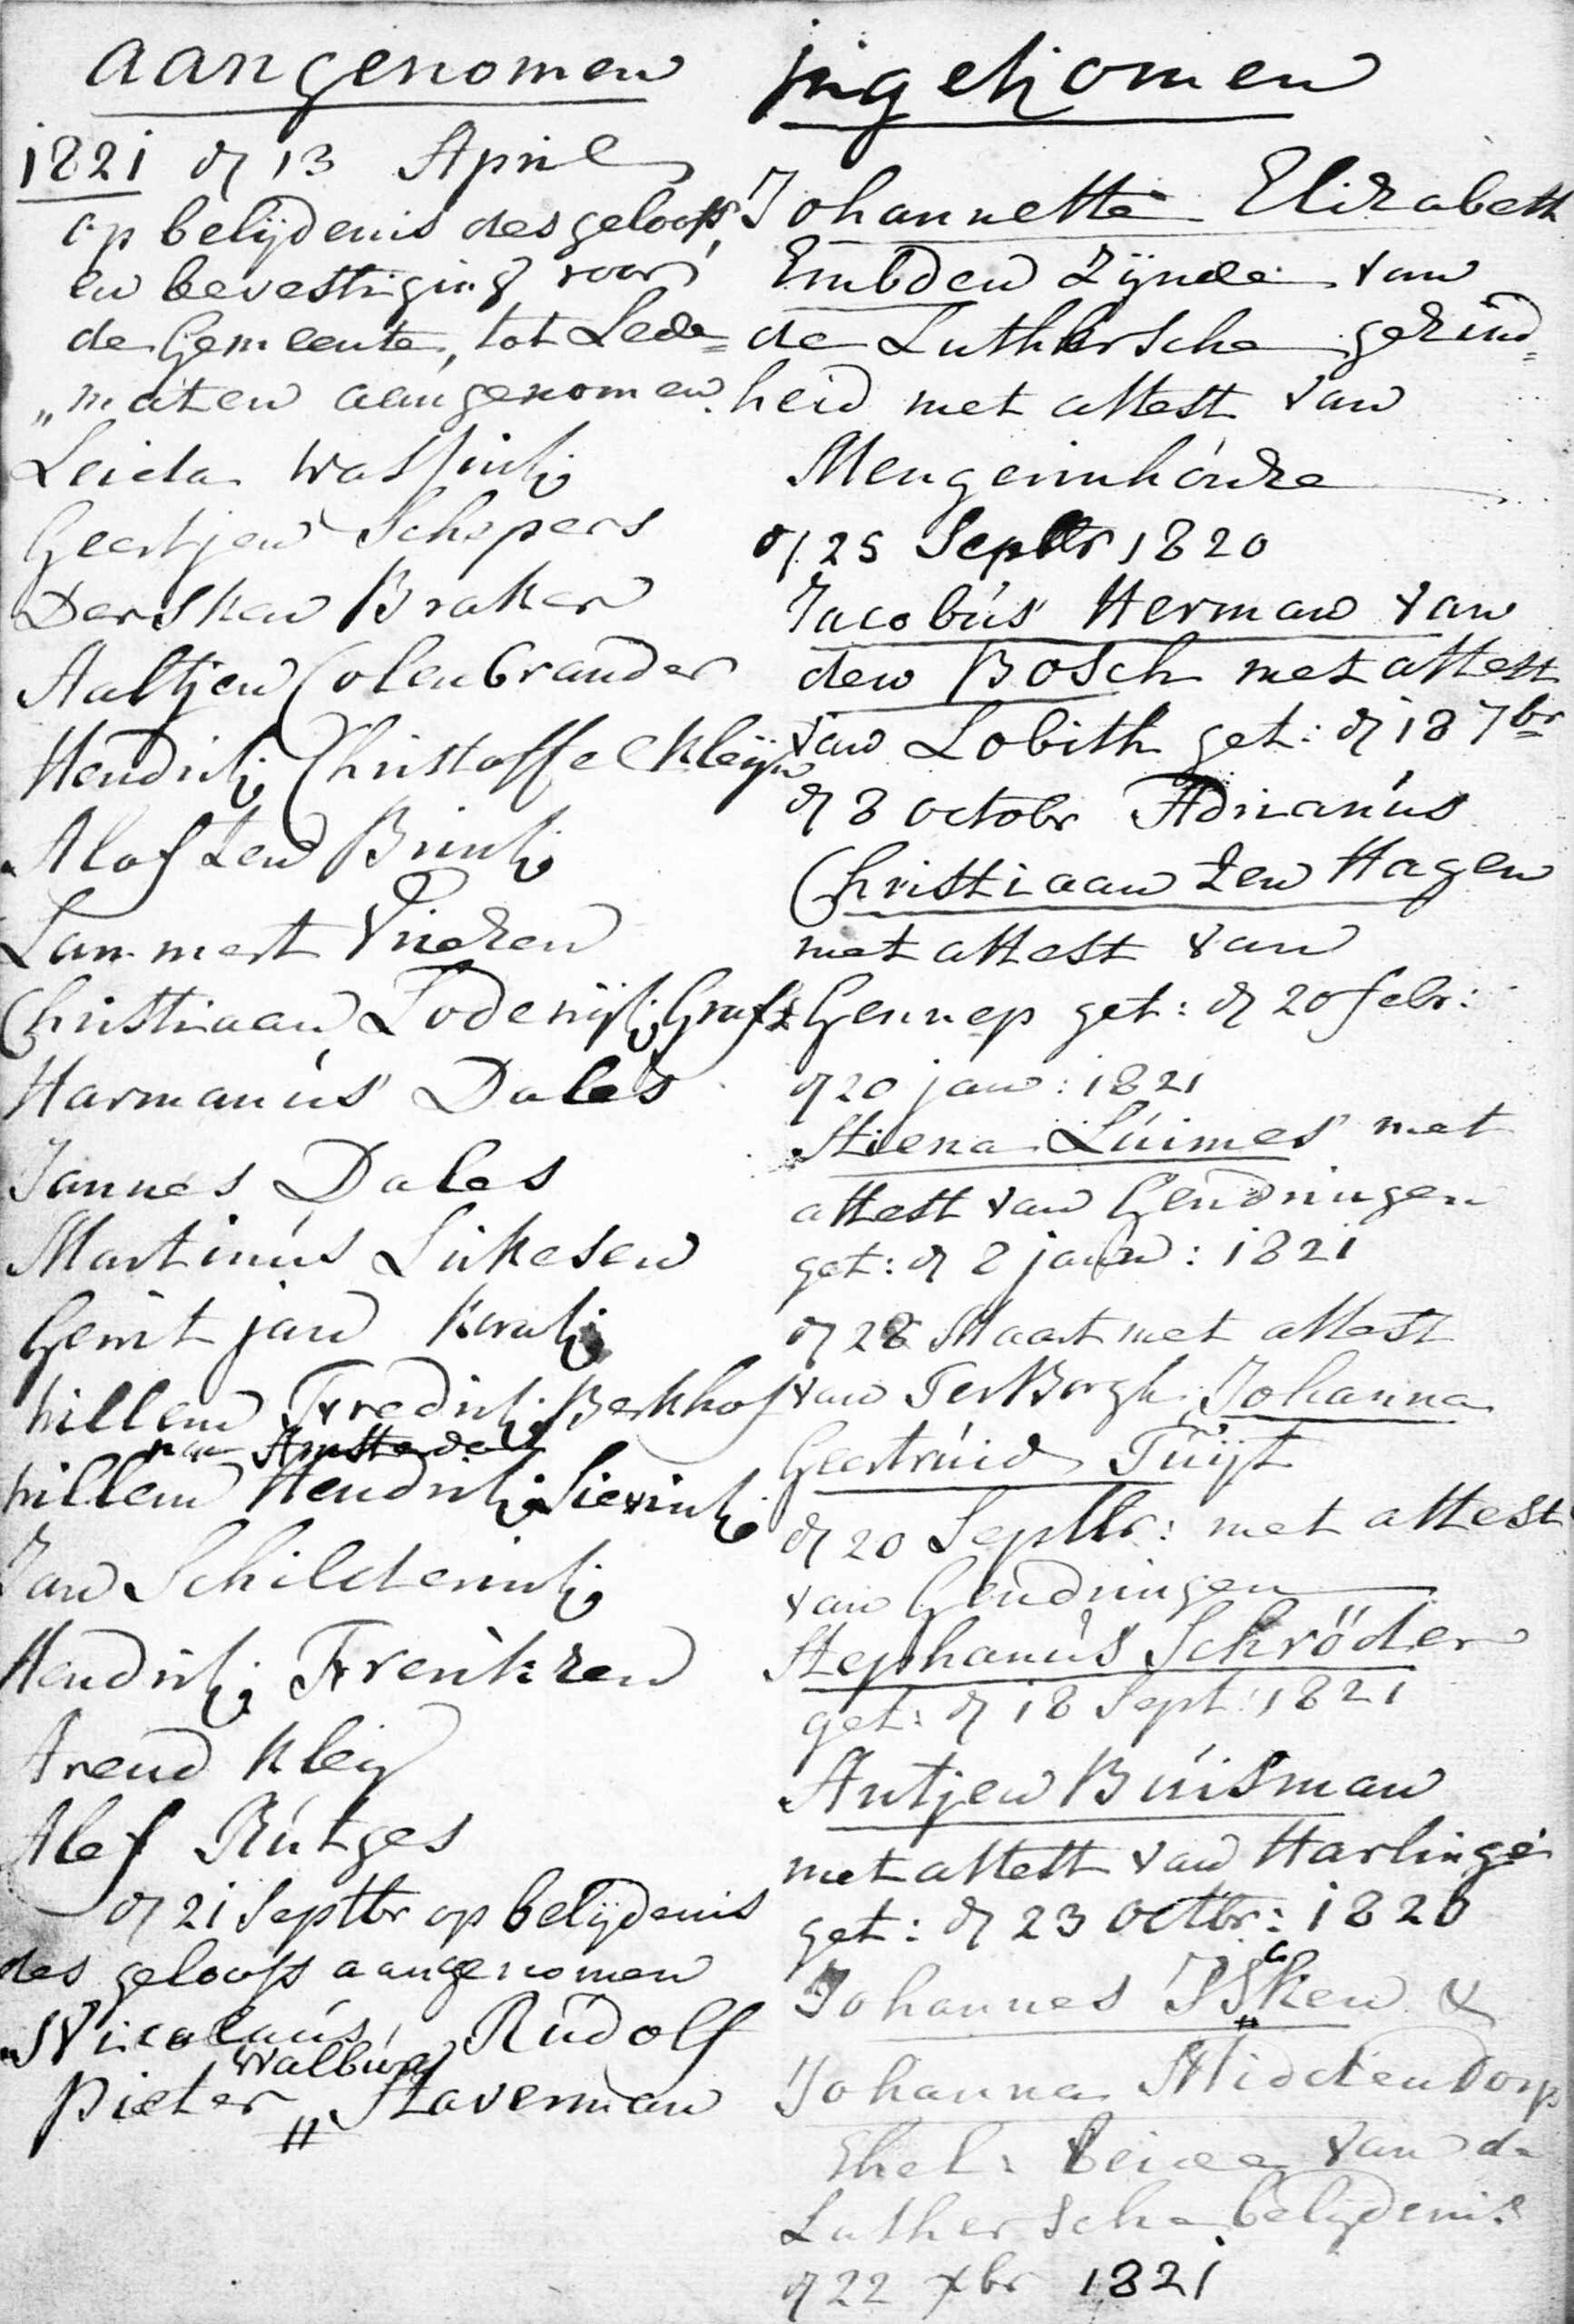 aangenomen
1821 d 13 April
op belijdenis des geloofs,
en bevestiging voor
de Gemeente, tot Lede=
„maten aangenomen.
Leida Wassink
Geertjen Schepers
Dersken Braker
Aaltjen Colenbrander
Hendrik Christoffel Kleijn
Alof ten Brink
Lammert Vriezen
Christiaan Lodewijk Grafs
Harmanus Dales
Jannes Dales
Martinus Lukesen
Gerrit jan Kraak
Willem Fredrik Berkhof
Willem Hendrik Sievink
Jan Schilderink
Hendrik Frenkzen
Arend Kleij
Alef Rutges
d 21 Septbr op belijdenis
des geloofs aangenomen
Nicolaus, Rudolf
Walburg
Pieter „ Staverman
ingekomen
Johannette Elizabeth
Embden Zijnde van
de Luthersche gezind=
heid met attest van
Mengerinhouze
d 25 Septbr 1820
Jacobus Herman van
den Bosch met attest
van Lobith get: d 18 7br
d 8 octobr Adrianus
Christiaan ten Hagen
met attest van
Gennep get: d 20 febr:
d 20 jan: 1821
Stiena Luimes met
attest van Gendringen
get: d 8 jann: 1821
d 28 Maart met attest
van TerBorgh Johanna
Geertruid Tuijt
d 20 Septbr: met attest
van Gendringen
Stephanus Schröder
get: d 18 Sept: 1821
Antjen Buisman
met attest van Harlinge
get: d 23 Octbr: 1820
Johannes Isken &
Johanna Middendorp
Ehel: beide van de
Luthersche belijdenis
d 22 xbr 1821